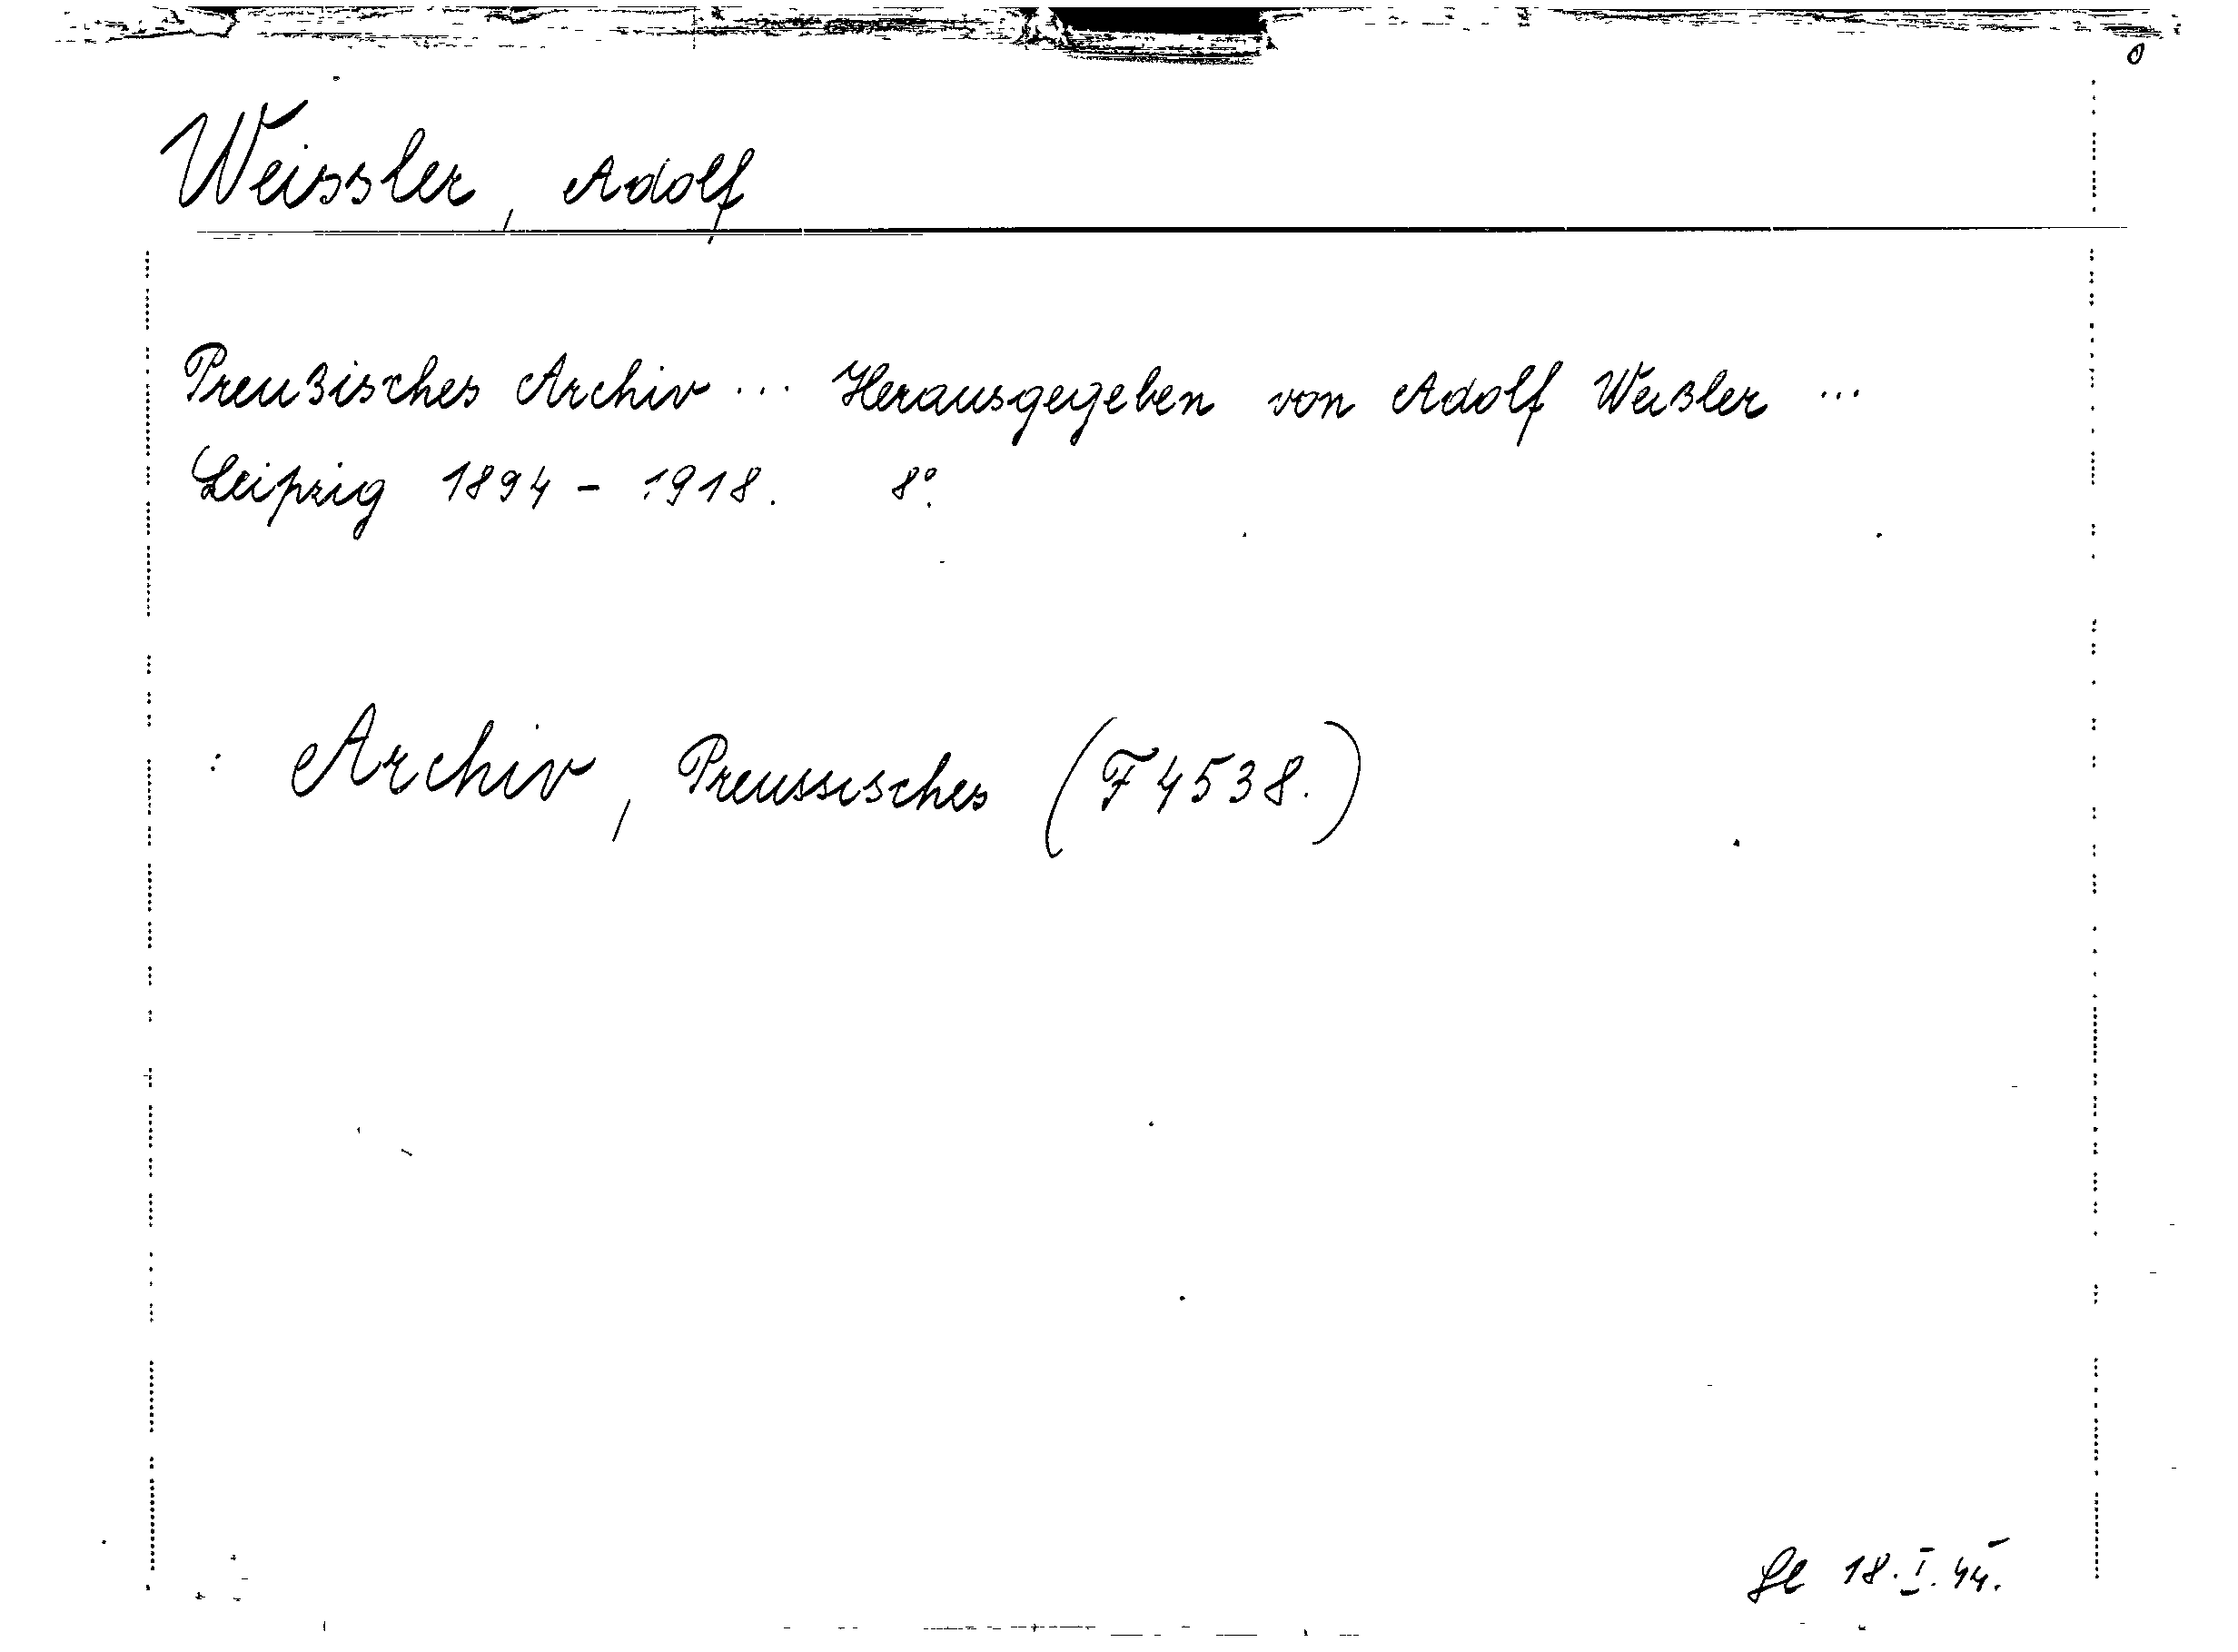 Weissler, Adolf
Preußisches Archiv ... Herausgegeben von Adolf Weißler ...
Leipzig 1894 - 1918. 8°.
: Archiv, Preussisches (F 4538.)
18. I. 44.